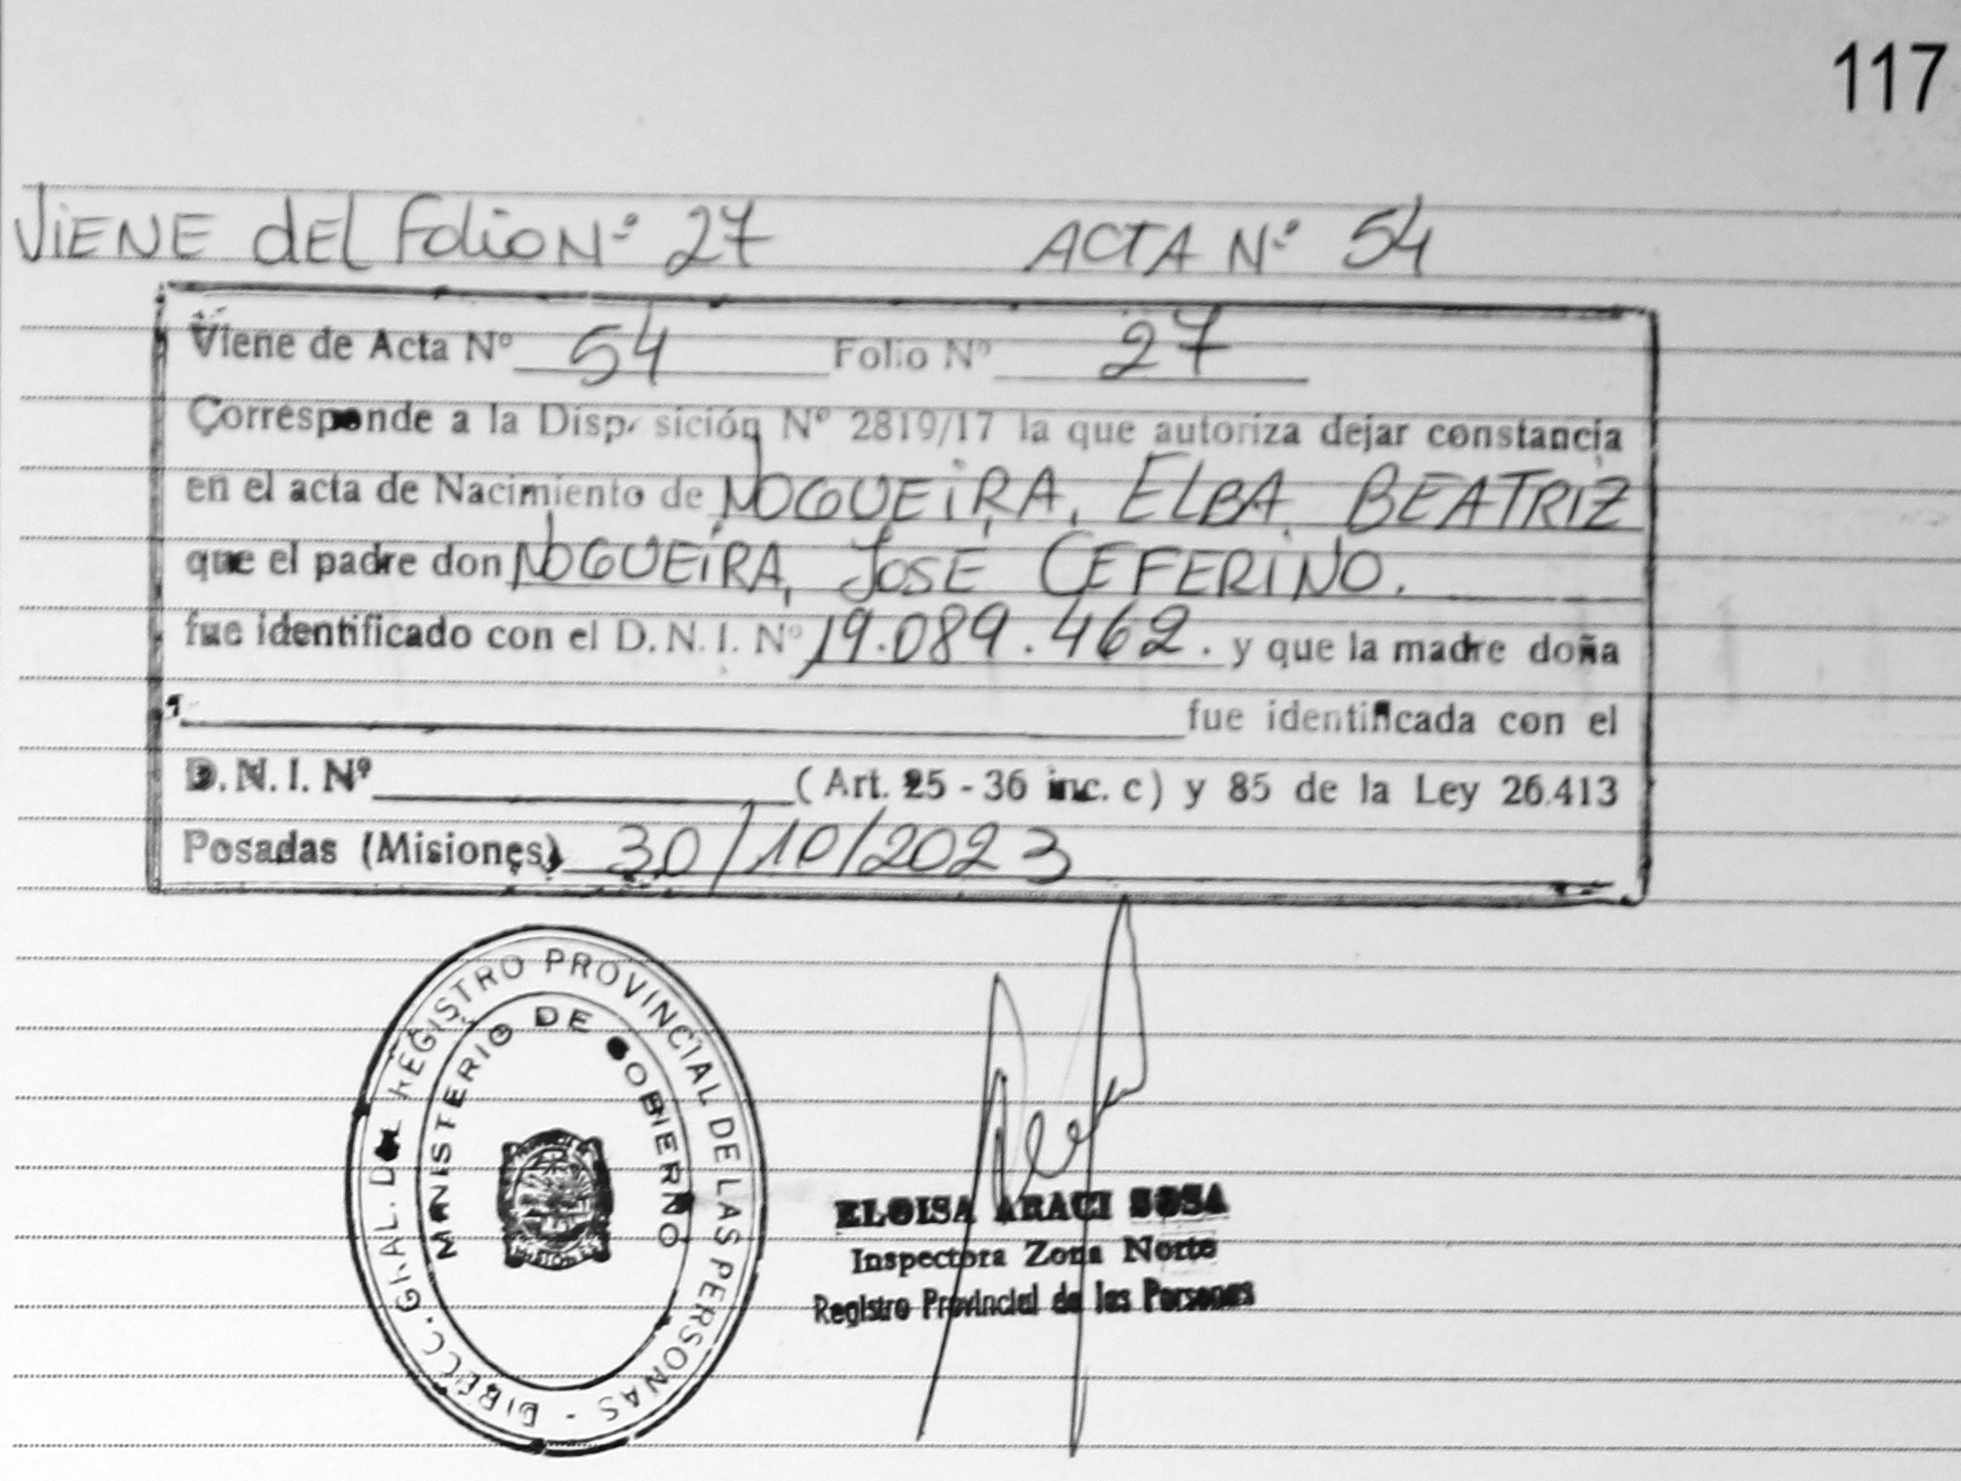 117
ViENE dEL Folio Nº 27 ACTA Nº 54
Viene de Acta Nº 54 Folio Nº 27
Corresponde a la Disposición Nº 2819/17 la que autoriza dejar constancia
en el acta de Nacimiento de NOGUEiRA, ELBA BEATRIZ
que el padre don NOGUEiRA, JOSÉ CEFERiNO.
fue identificado con el D.N.I. Nº 19.089.462. y que la madre doña
fue identificada con el
D.N.I. Nº (Art. 25 - 36 inc. c) y 85 de la Ley 26.413
Posadas (Misiones) 30/10/2023
DIRECC. GRAL. DEL REGISTRO PROVINCIAL DE LAS PERSONAS -
MINISTERIO DE GOBIERNO
ELOISA ARACI SOSA
Inspectora Zona Norte
Registro Provincial de las Personas